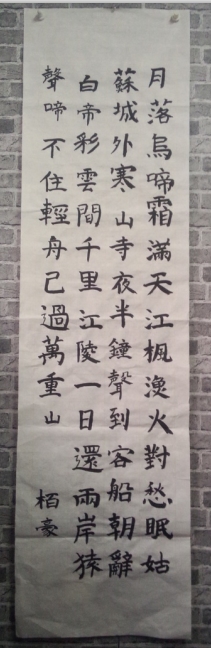 月落烏啼霜滿天江楓漁火對愁眠姑
蘇城外寒山寺夜半鐘聲到客船朝辭
白帝彩雲間千里江陵一日還兩岸猿
聲啼不住輕舟已過萬重山
栢豪